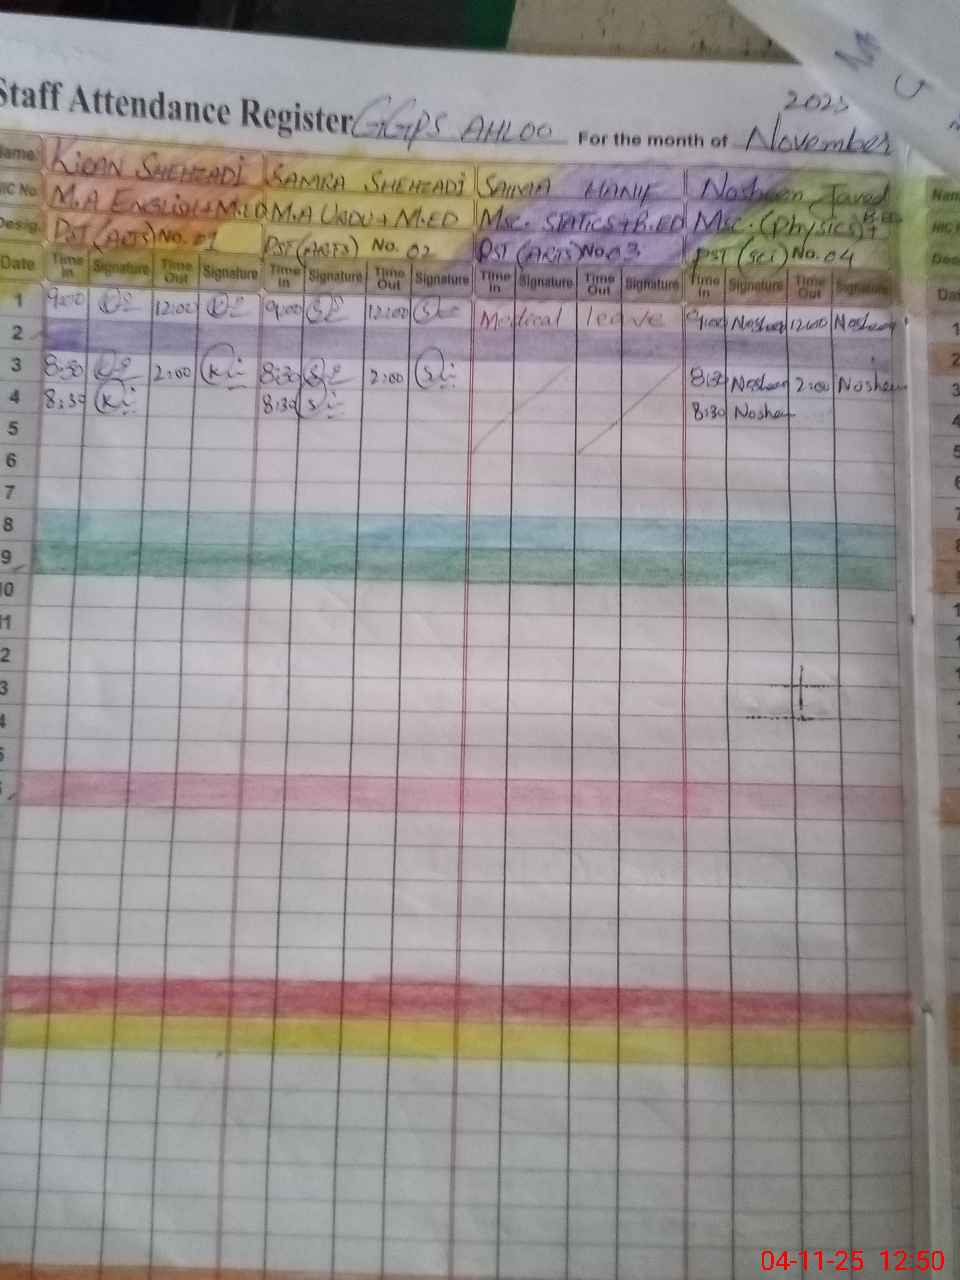 2025
Staff Attendance Register GGPS AHLOO For the month of November
Name: KIRAN SHEHZADI SAMRA SHEHZADI SAIMA HANIF Nosheen Javed Nam
NIC No M.A ENGLISH+M.ED M.A URDU+M.ED MSC. STATICS+B.ED MSC.(Physics)+B.ED NIC
Desig. PST(ARTS)No.01 PST(ARTS) No.02 PST(ARTS)No.03 PST(SCI) No.04 Des
Date Time In Signature Time Out Signature Time In Signature Time Out Signature Time In Signature Time Out Signature Time In Signature Time Out Signature Da
1 9:00 12:00 9:00 12:00 Medical leave 9:00 Nosheen 12:00 Nosheen 1
2
3 8:30 2:00 8:30 2:00 8:30 Nosheen 2:00 Nosheen 3
4 8:30 8:30 8:30 Nosheen 4
5
6
7
8
9
10
11
2
3
4
5
04-11-25 12:50